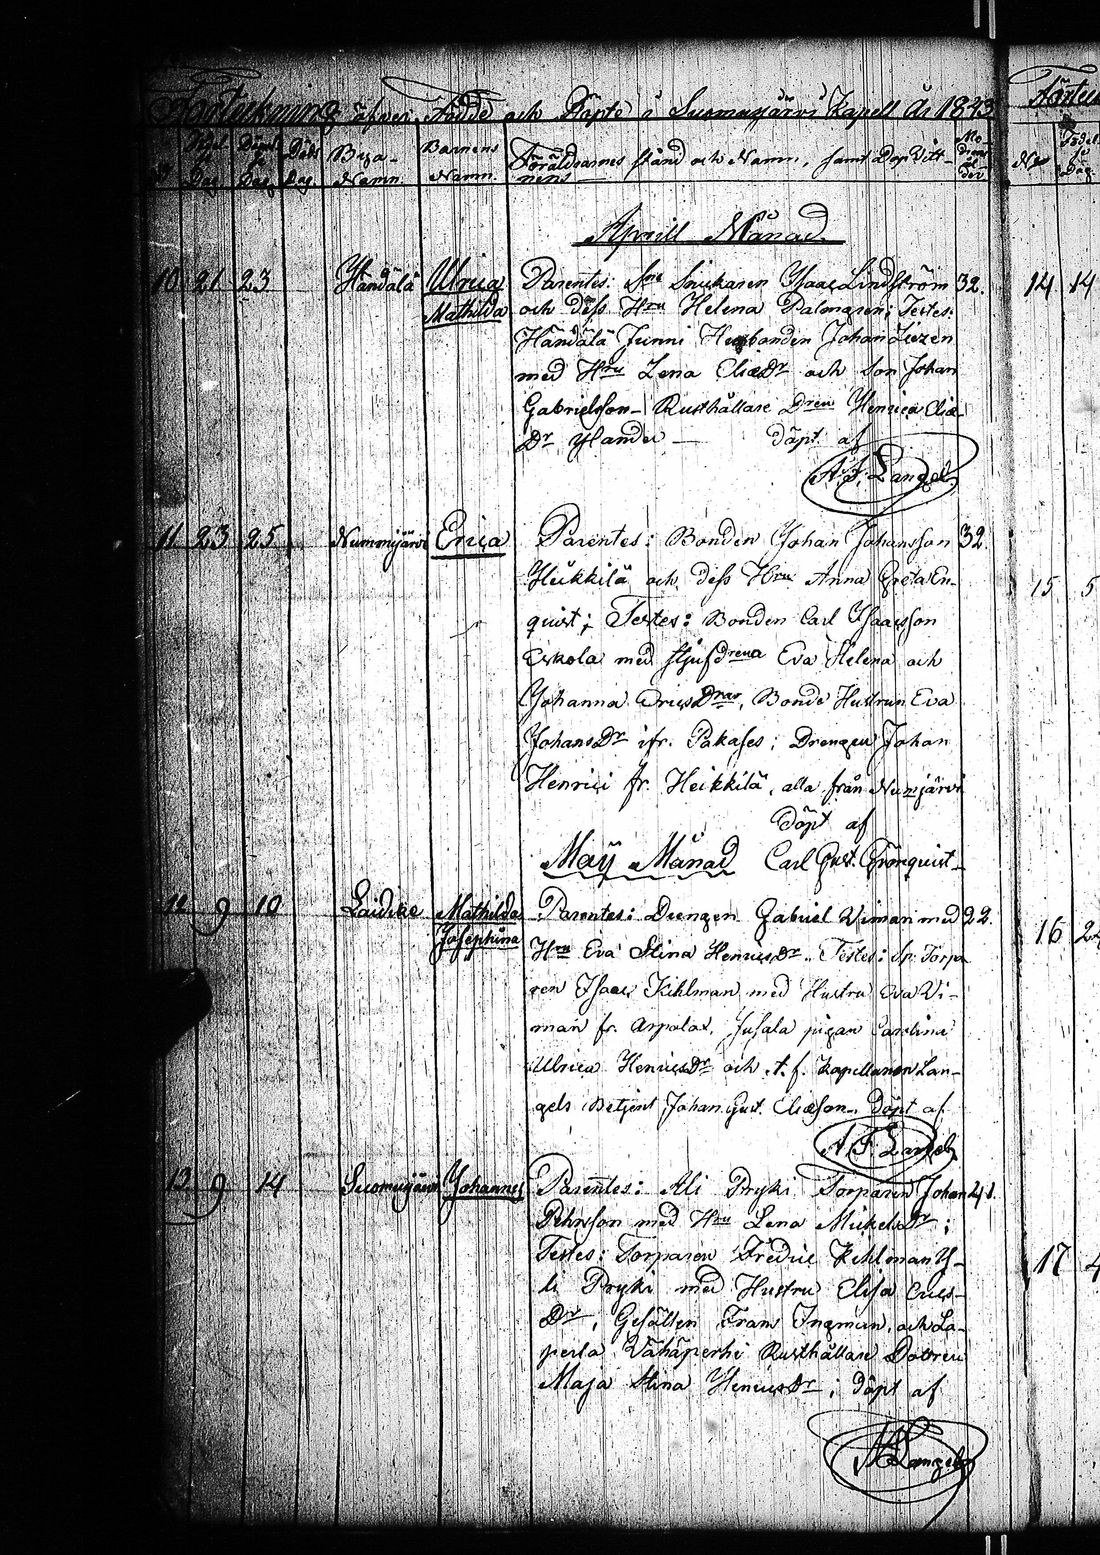 Förteckning öfver Födde och Döpte i Suomusjärvi Kapell År 1823
No Födel se Dag Döpel se Dag Döds Dag Byga- Namn Barnens Namn Föräldrarnes stånd och Namn, samt Dop Vitt- nens Mo- drens ålder
Aprill Månad
10 21 23 Händälä Ulrica Parentes: Snickaren Isaac Lindström 32.
Mathilda och dess Hru Helena Palmgren; Testes:
Händälä Junni Husbonden Johan
med Hru Lena EliæDr och Son Johan
Gabrielsson Rusthållare Dren Henrica Eliæ
Dr döpt af
A. F. Langel
11 23 25 Nummijärvi Erica Parentes: Bonden Johan Johansson 32.
Heikkilä och dess Hru Anna Greta En-
quist; Testes: Bonden Carl Isaacsson
Eskola med Eva Helena och
Johanna EricsDrar, Bonde Hustrun Eva
JohansDr ifr. Pakases; Drengen Johan
Henrici fr. Heikkilä, alla från Numjärvi
döpt af
Maij Månad Carl Gust. Grönquist
12 9 10 Laidike Mathilda Parentes: Drengen Gabriel Viman med 22.
Josephina Hru Eva Stina HenricsDr. Testes: Sp. Torpa
ren Isaac Kihlman med Hustru Eva Vi-
man fr. Arpalax, Jusala pigan Carolina
Ulrica HenricsDr och t.f. Kapellanen Lan-
gels Betjent Johan Gust. Eliæson. Döpt af
A. F. Langel
13 9 14 Suomusjärvi Johannes Parentes: Ali Pryki Torparen Johan 41.
Pehrsson med Hru Lena MickelsDr;
Testes: Torparen Fredric Kihlman Y-
li Pryki med Hustru Elisa Erics-
Dr, Gesällen Frans Ingman, och La-
perla Vähäperhi Rusthållare Dottren
Maja Stina HenricsDr; döpt af
A Langel
No Födel se Dag
14 14
15 5
16 24
17 4